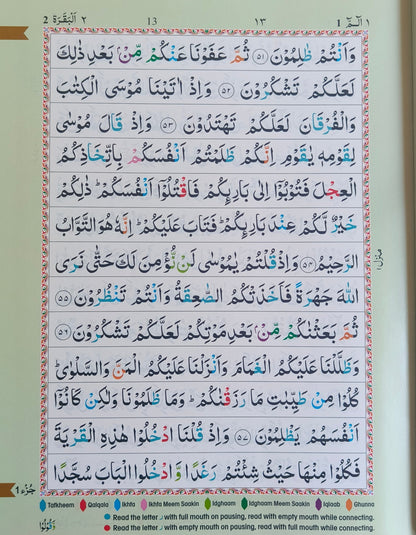 ٢ اَلْبَقَرَة 2 13 ١٣ ١ الٓمّٓ 1
وَاَنْتُمْ ظٰلِمُوْنَ ﴿٥١﴾ ثُمَّ عَفَوْنَا عَنْكُمْ مِّنْۢ بَعْدِ ذٰلِكَ
لَعَلَّكُمْ تَشْكُرُوْنَ ﴿٥٢﴾ وَاِذْ اٰتَيْنَا مُوْسَى الْكِتٰبَ
وَالْفُرْقَانَ لَعَلَّكُمْ تَهْتَدُوْنَ ﴿٥٣﴾ وَاِذْ قَالَ مُوْسٰى
لِقَوْمِهٖ يٰقَوْمِ اِنَّكُمْ ظَلَمْتُمْ اَنْفُسَكُمْ بِاتِّخَاذِكُمُ
الْعِجْلَ فَتُوْبُوْۤا اِلٰى بَارِئِكُمْ فَاقْتُلُوْۤا اَنْفُسَكُمْ ؕ ذٰلِكُمْ
خَيْرٌ لَّكُمْ عِنْدَ بَارِئِكُمْ ؕ فَتَابَ عَلَيْكُمْ ؕ اِنَّهٗ هُوَ التَّوَّابُ
الرَّحِيْمُ ﴿٥٤﴾ وَاِذْ قُلْتُمْ يٰمُوْسٰى لَنْ نُّؤْمِنَ لَكَ حَتّٰى نَرَى
اللّٰهَ جَهْرَةً فَاَخَذَتْكُمُ الصّٰعِقَةُ وَاَنْتُمْ تَنْظُرُوْنَ ﴿٥٥﴾
ثُمَّ بَعَثْنٰكُمْ مِّنْۢ بَعْدِ مَوْتِكُمْ لَعَلَّكُمْ تَشْكُرُوْنَ ﴿٥٦﴾
وَظَلَّلْنَا عَلَيْكُمُ الْغَمَامَ وَاَنْزَلْنَا عَلَيْكُمُ الْمَنَّ وَالسَّلْوٰى ؕ
كُلُوْا مِنْ طَيِّبٰتِ مَا رَزَقْنٰكُمْ ؕ وَمَا ظَلَمُوْنَا وَلٰكِنْ كَانُوْۤا
اَنْفُسَهُمْ يَظْلِمُوْنَ ﴿٥٧﴾ وَاِذْ قُلْنَا ادْخُلُوْا هٰذِهِ الْقَرْيَةَ
فَكُلُوْا مِنْهَا حَيْثُ شِئْتُمْ رَغَدًا وَّادْخُلُوا الْبَابَ سُجَّدًا
منزل ١
جُزء 1
Tafkheem Qalqala Ikhfa Ikhfa Meem Saakin Idghaam Idghaam Meem Saakin Iqlaab Ghunna
Read the letter ر with full mouth on pausing, read with empty mouth while connecting.
Read the letter ر with empty mouth on pausing, read with full mouth while connecting.
وَّقُوْلُوْا